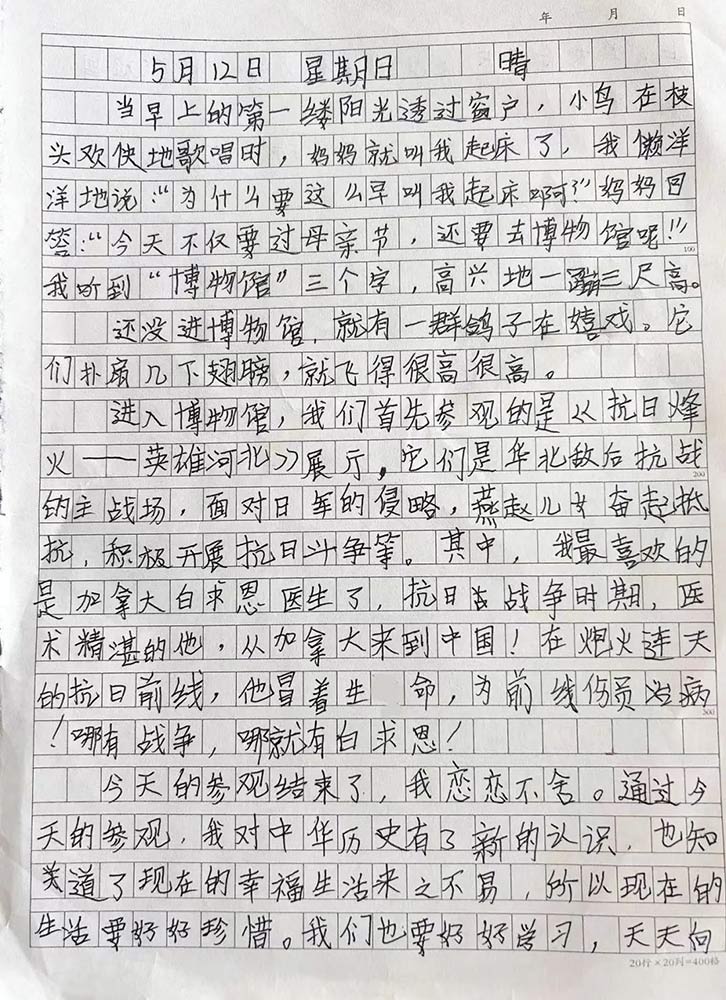 年 月 日
5月12日 星期日 晴
当早上的第一缕阳光透过窗户，小鸟在枝
头欢快地歌唱时，妈妈就叫我起床了，我懒洋
洋地说：“为什么要这么早叫我起床啊？”妈妈回
答：“今天不仅要过母亲节，还要去博物馆呢！”
100
我听到“博物馆”三个字，高兴地一蹦三尺高。
还没进博物馆，就有一群鸽子在嬉戏。它
们扑扇几下翅膀，就飞得很高很高。
进入博物馆，我们首先参观的是《抗日烽
火——英雄河北》展厅，它们是华北敌后抗战
200
的主战场，面对日军的侵略，燕赵儿女奋起抵
抗，积极开展抗日斗争等。其中，我最喜欢的
是加拿大白求恩医生了，抗日战争时期，医
术精湛的他，从加拿大来到中国！在炮火连天
的抗日前线，他冒着生 命，为前线伤员治病
300
！哪有战争，哪就有白求恩！
今天的参观结束了，我恋恋不舍。通过今
天的参观，我对中华历史有了新的认识，也知
道了现在的幸福生活来之不易，所以现在的
生活要好好珍惜。我们也要好好学习，天天向
20行×20列=400格